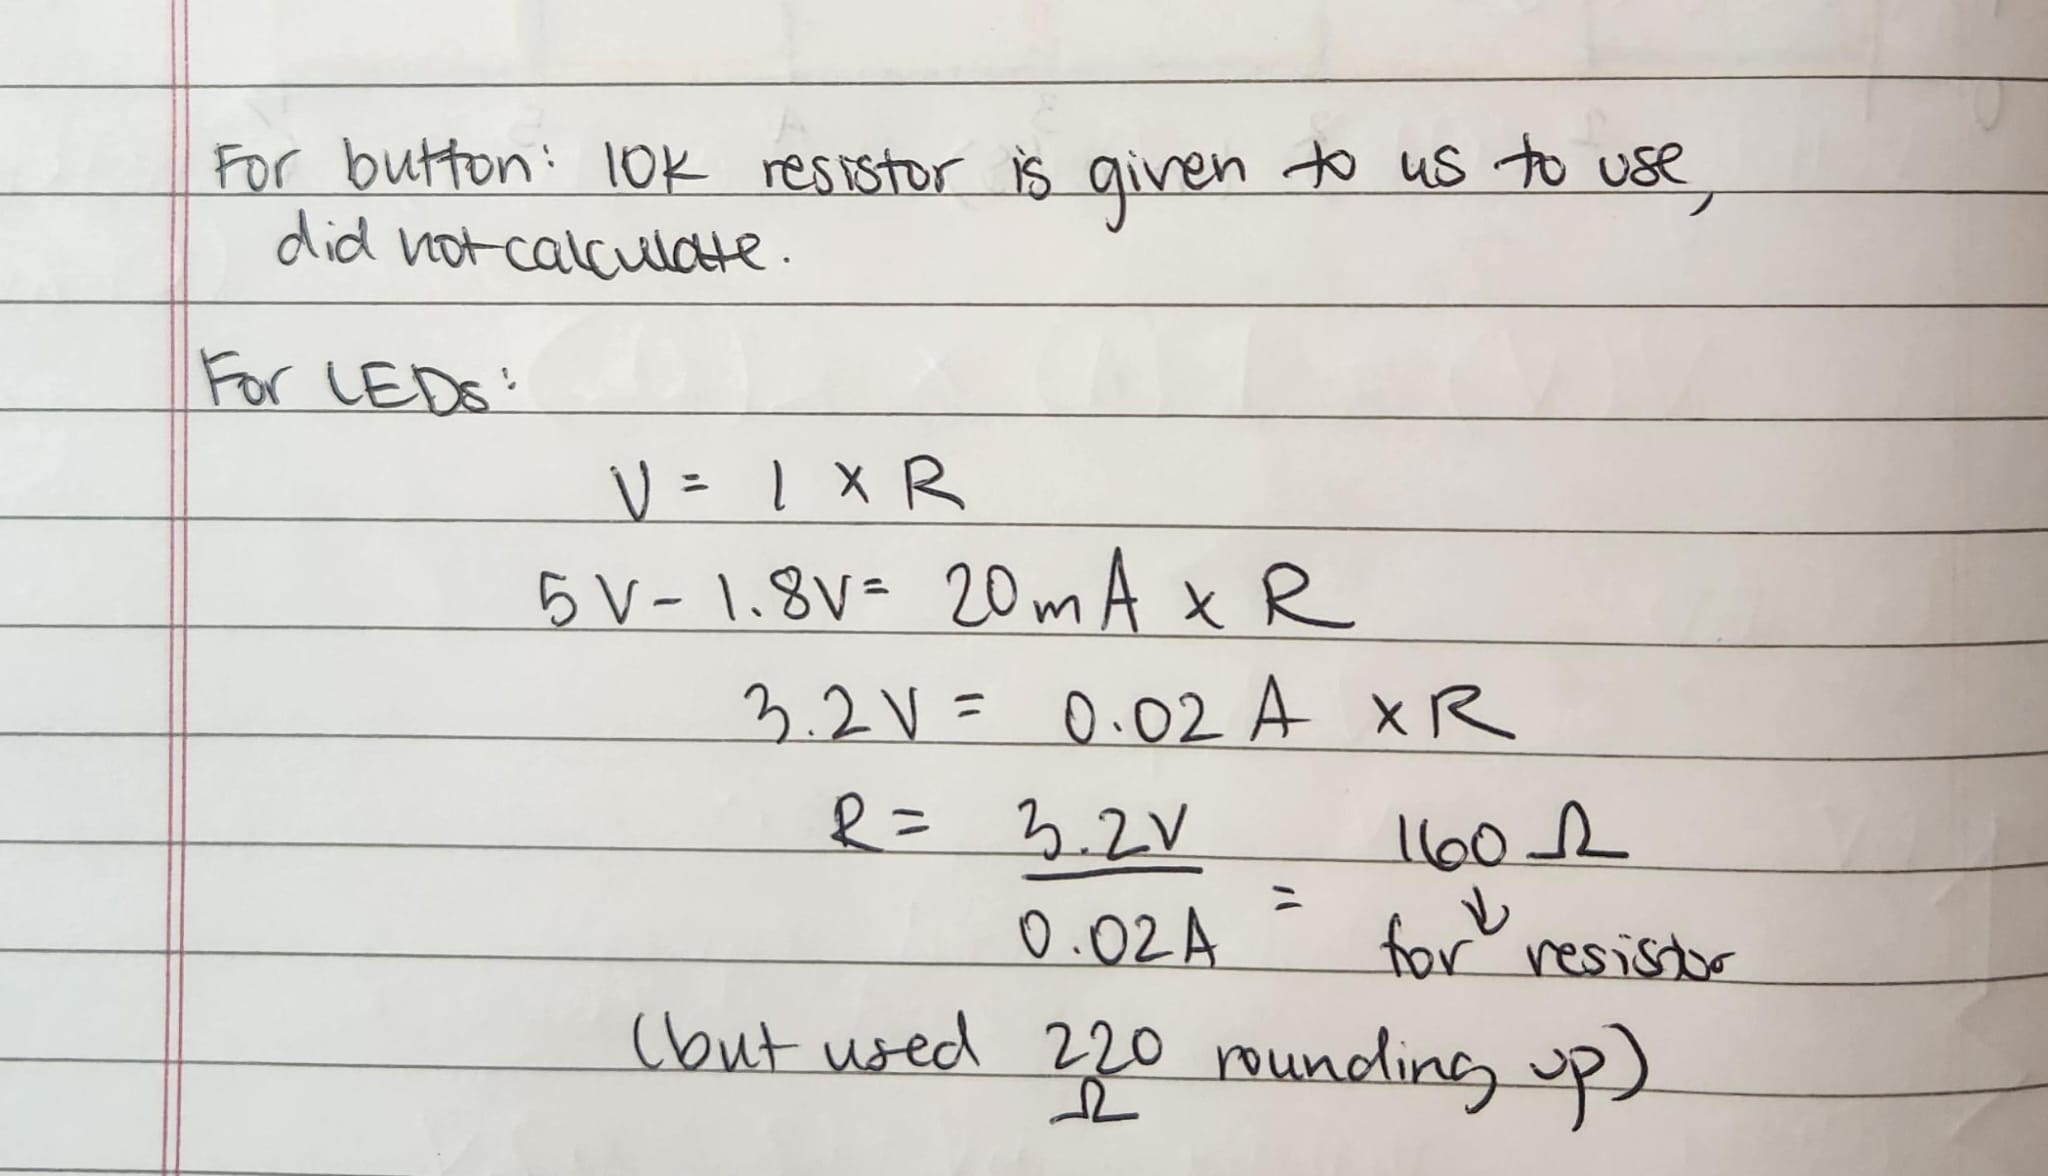 For button: 10k resistor is given to us to use,
did not calculate.
For LEDs:
V = I x R
5V - 1.8V = 20mA x R
3.2V = 0.02 A x R
R = 3.2V / 0.02A = 160 Ω
↓
for resistor
(but used 220 Ω rounding up)